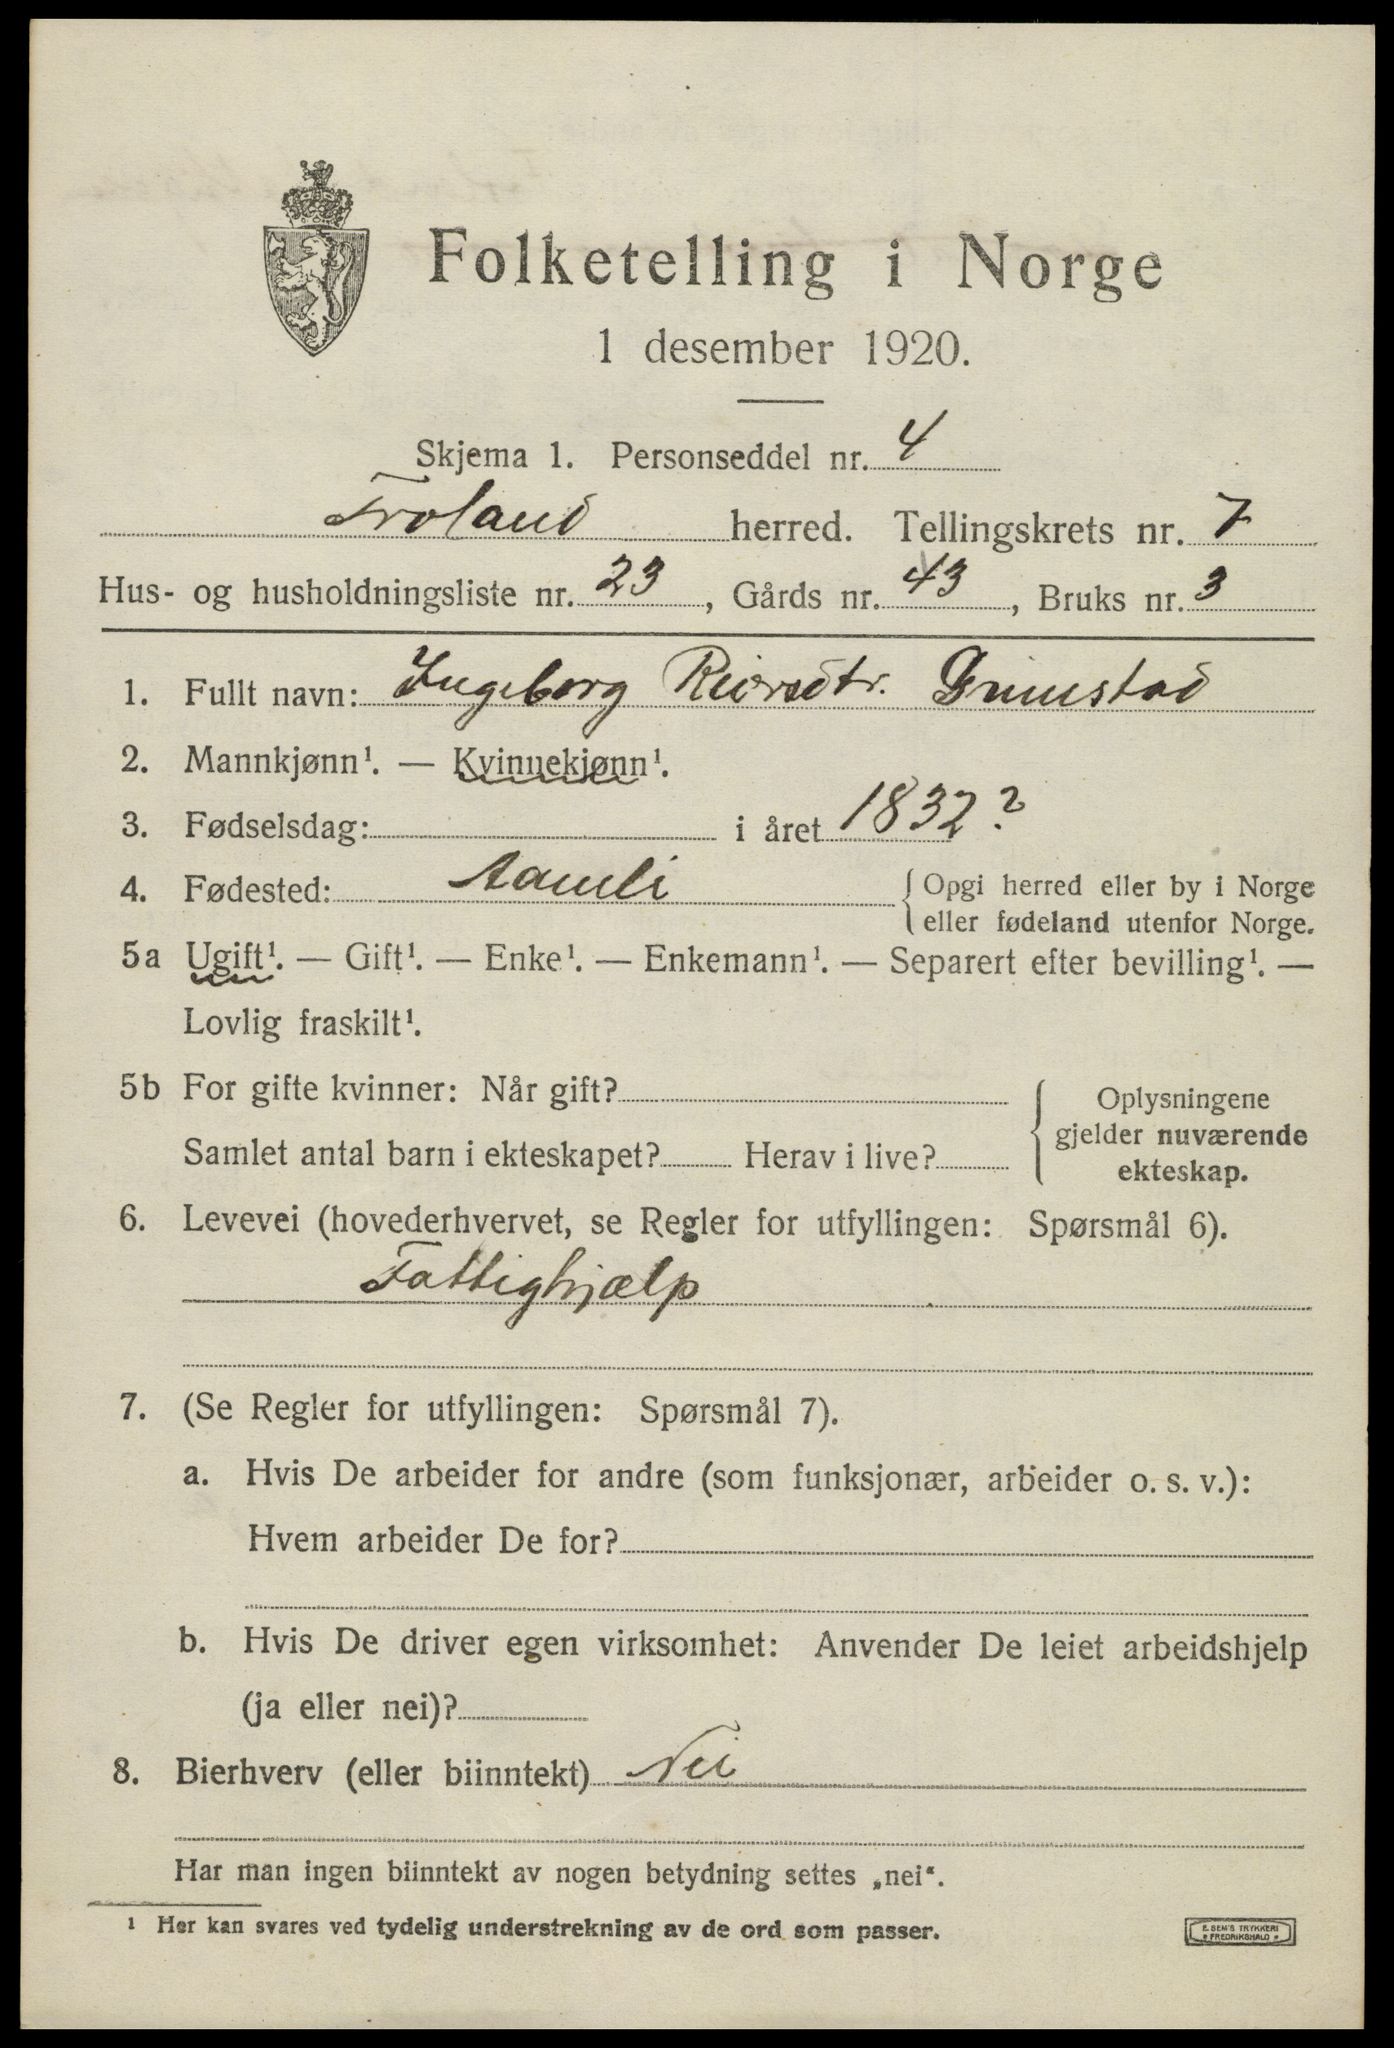 Folketelling i Norge
1 desember 1920.
Skjema 1. Personseddel nr. 4
Froland herred. Tellingskrets nr. 7
Hus- og husholdningsliste nr. 23, Gårds nr. 43, Bruks nr. 3
1. Fullt navn: Ingeborg Reiersdtr. Grimstad
2. Mannkjønn¹. — Kvinnekjønn¹.
3. Fødselsdag: i året 1832?
4. Fødested: Aamli { Opgi herred eller by i Norge
eller fødeland utenfor Norge.
5a Ugift¹. — Gift¹. — Enke¹. — Enkemann¹. — Separert efter bevilling¹. —
Lovlig fraskilt¹.
5b For gifte kvinner: Når gift?
Samlet antal barn i ekteskapet? Herav i live?
{ Oplysningene
gjelder nuværende
ekteskap.
6. Levevei (hovederhvervet, se Regler for utfyllingen: Spørsmål 6).
Fattighjælp
7. (Se Regler for utfyllingen: Spørsmål 7).
a. Hvis De arbeider for andre (som funksjonær, arbeider o. s. v.):
Hvem arbeider De for?
b. Hvis De driver egen virksomhet: Anvender De leiet arbeidshjelp
(ja eller nei)?
8. Bierhverv (eller biinntekt) Nei
Har man ingen biinntekt av nogen betydning settes „nei“.
¹ Her kan svares ved tydelig understrekning av de ord som passer.
E. SEM'S TRYKKERI
• FREDRIKSHALD •